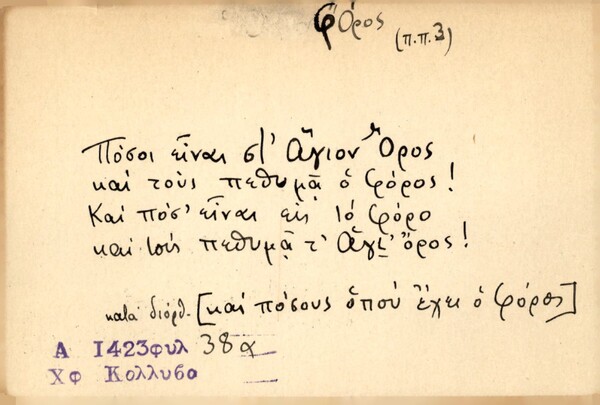 φόρος (π.π. 3)
Πόσοι εἶναι στ' Ἅγιον Ὄρος
καὶ τοὺς πεθυμᾷ ὁ φόρος!
Καὶ πόσ' εἶναι εἰς τὸ φόρο
καὶ τοὺς πεθυμᾷ τ' Ἅγι' ὄρος!
κατὰ διόρθ. [καὶ πόσους ὁποὺ ἔχει ὁ φόρος]
Α 1423φυλ 38α
Χφ Κολλυβα